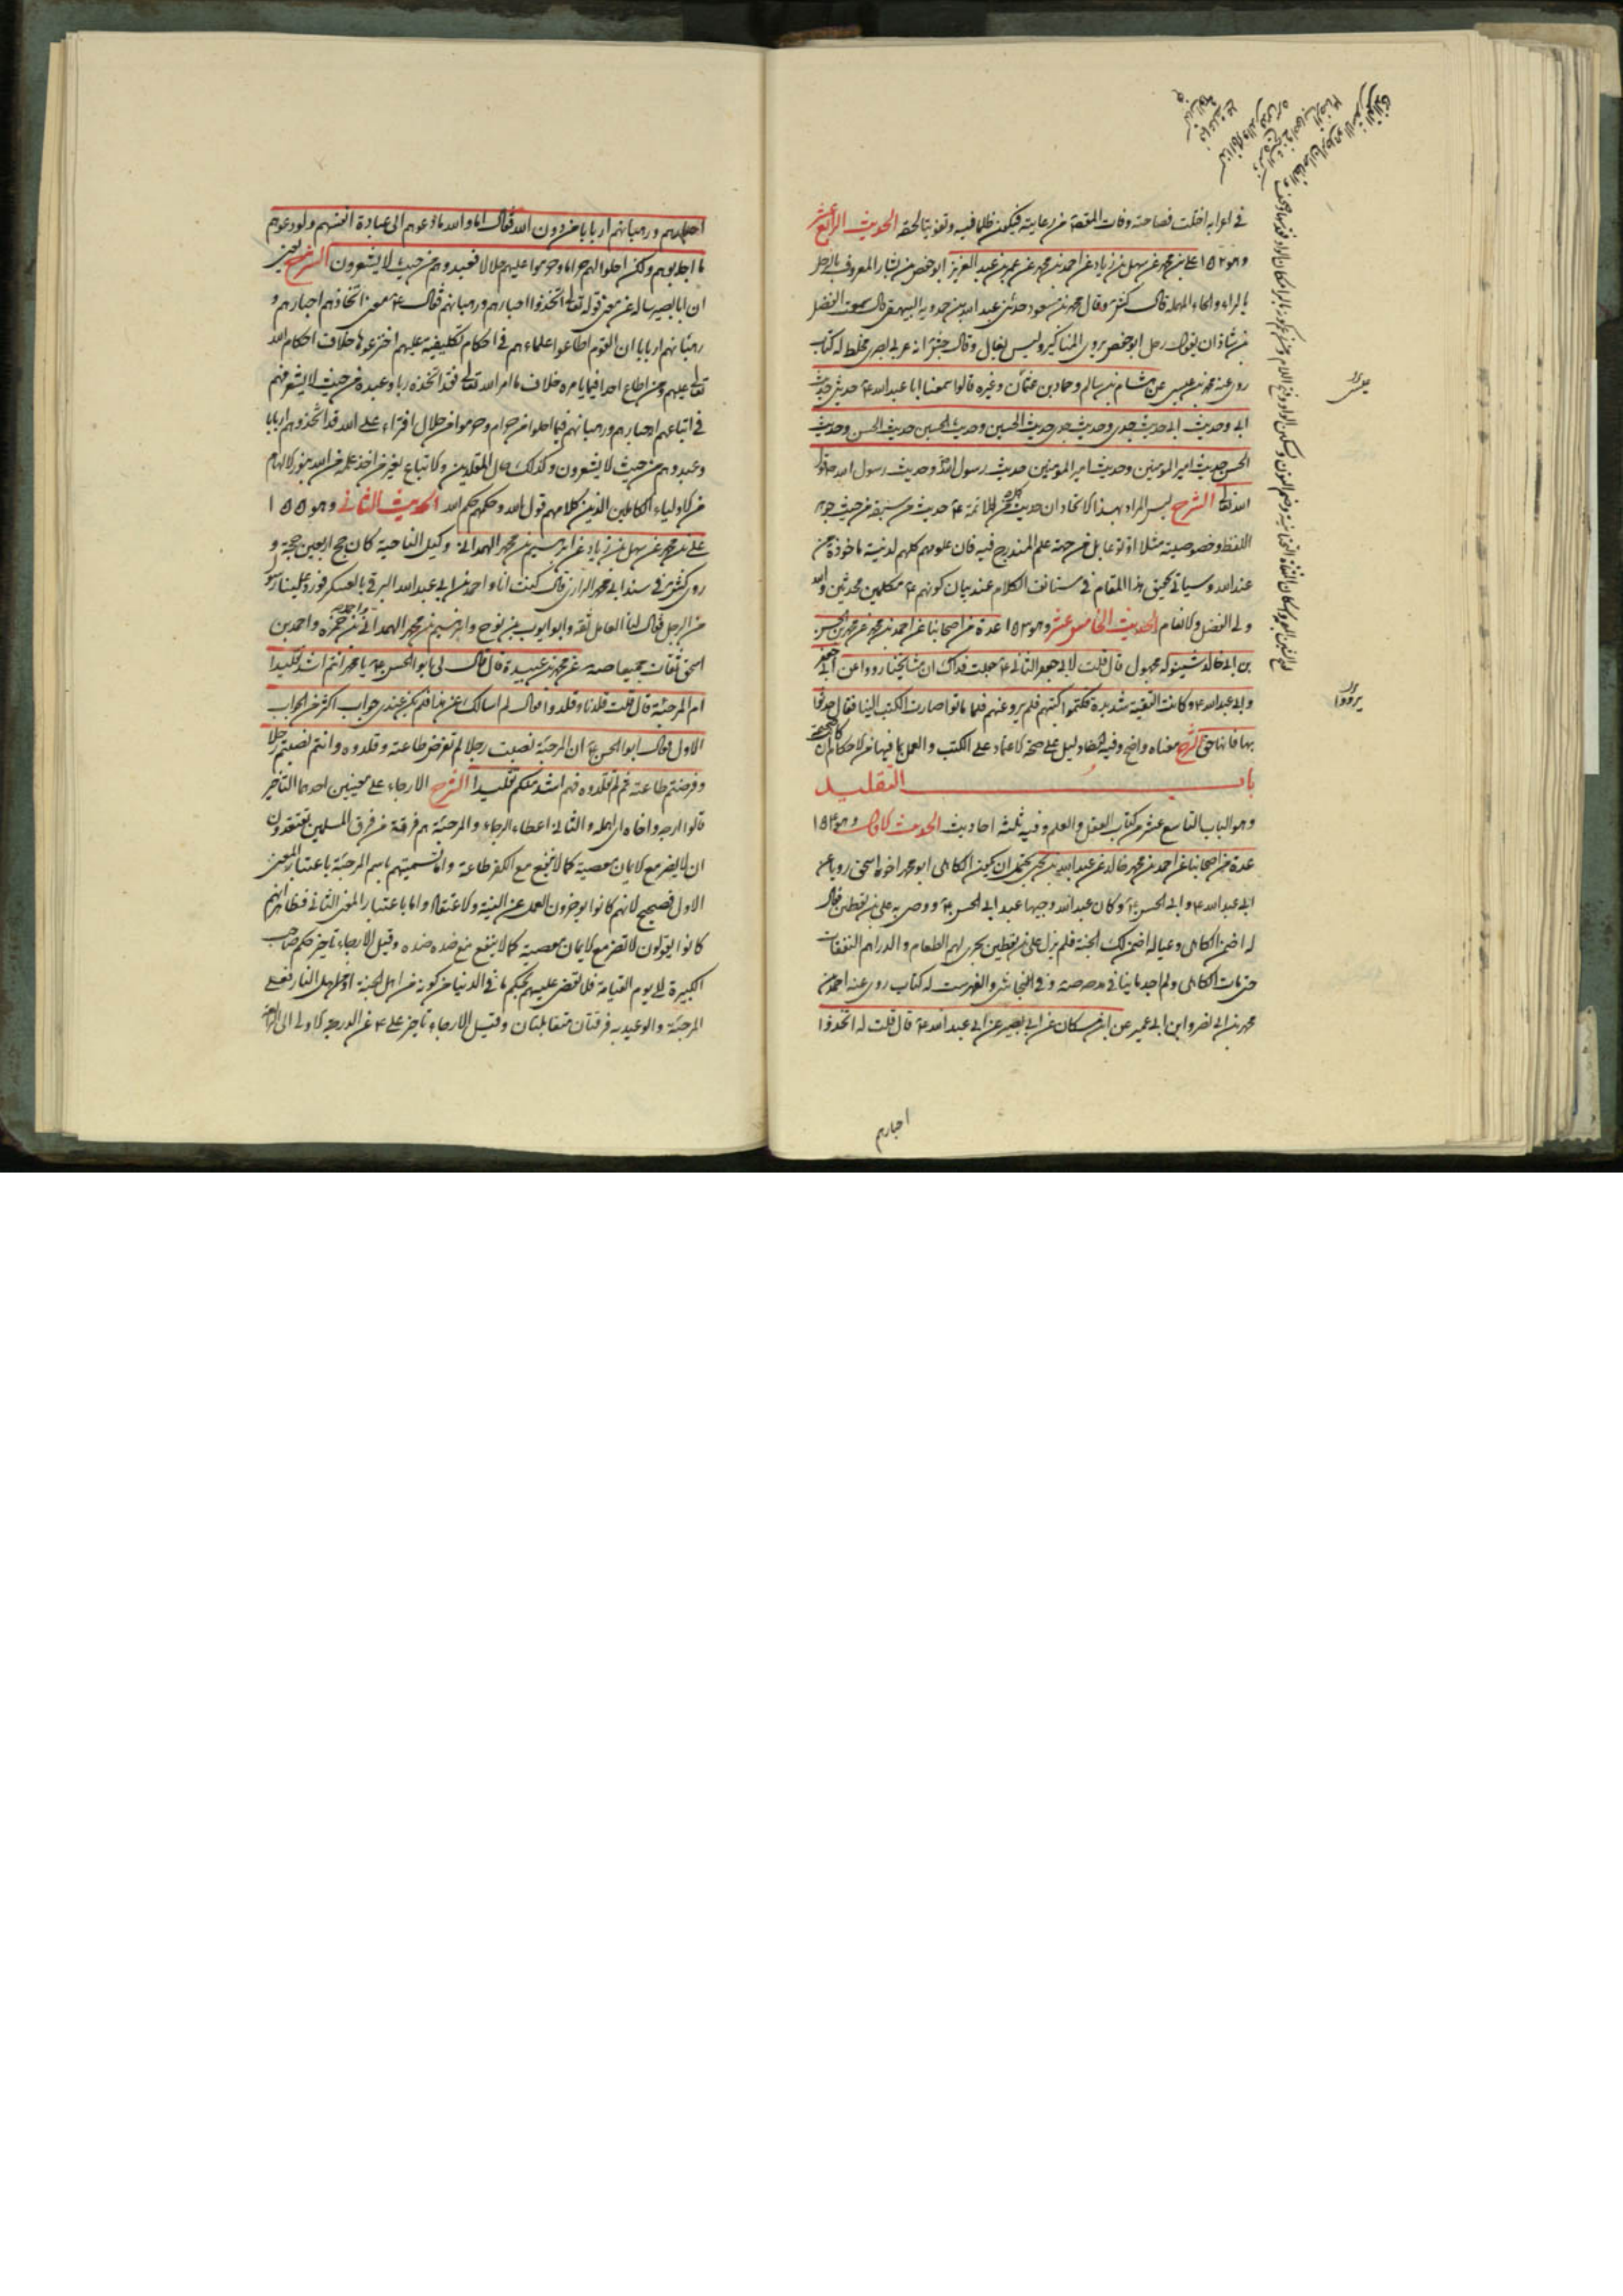 في اعرابه اختلت فصاحته وفات المقصود من رعايته فيكون ظلما فيه وتفويتا لحقه الحديث الرابع عشر
وهو ١٥٢ علي بن محمد عن سهل بن زياد عن احمد بن محمد عن عمر بن عبد العزيز ابو حفص بن بشار المعروف بالرحل
بالراء والحاء المهملة قال كش وقال محمد بن مسعود حدثني عبد الله بن حمدويه البيهقي قال سمعت الفضل
بن شاذان يقول رحل ابو حفص يروي المناكير وليس بغال وقال جش انه عربي بصري مخلط له كتاب
روى عنه محمد بن عيسى عن هشام بن سالم وحماد بن عثمان وغيره قالوا سمعنا ابا عبد الله ع حديثي حديث
ابي وحديث ابي حديث جدي وحديث جدي حديث الحسين وحديث الحسين حديث الحسن وحديث
الحسن حديث امير المؤمنين وحديث امير المؤمنين حديث رسول الله وحديث رسول الله قول
الله تعالى الشرح ليس المراد بهذا الاتحاد ان حديث كل من الائمة ع حديث من سبقه من حيث جوهر
اللفظ وخصوصيته مثلا او نوعا بل من جهة علم المندرج فيه فان علومهم كلهم لدنية ماخوذة من
عند الله وسياتي تحقيق هذا المقام في مستانف الكلام عند بيان كونهم ع مكلمين محدثين والله
ولي الفضل والانعام الحديث الخامس عشر وهو ١٥٣ عدة من اصحابنا عن احمد بن محمد عن محمد بن الحسن
بن ابي خالد شينوله مجهول قال قلت لابي جعفر الثاني ع جعلت فداك ان مشايخنا رووا عن ابي جعفر
وابي عبد الله ع وكانت التقية شديدة فكتموا كتبهم فلم يرو عنهم فلما ماتوا صارت الكتب الينا فقال حدثوا
بها فانها حق الشرح معناه واضح وفيه ايضا دليل على صحة الاعتماد على الكتب والعمل بما فيها من الاحكام
باب التقليد
وهو الباب التاسع عشر من كتاب العقل والعلم وفيه ثلثة احاديث الحديث الاول وهو ١٥٤
عدة من اصحابنا عن احمد بن محمد خالد عن عبد الله بن يحيى يحتمل ان يكون الكاهلي ابو محمد اخو اسحق رويا عن
ابي عبد الله ع وابي الحسن ع وكان عبد الله وجيها عند ابي الحسن ع ووصى به علي بن يقطين فقال
له اضمن الكاهلي وعياله اضمن لك الجنة فلم يزل علي بن يقطين يجري لهم الطعام والدراهم النفقات
حتى مات الكاهلي ولم اجد ما ينافي مدحه صه وفي النجاشي والفهرست له كتاب روى عنه احمد بن
محمد بن ابي نصر وابن ابي عمير عن ابن مسكان عن ابي بصير عن ابي عبد الله ع قال قلت له اتخذوا
احبارهم
احبارهم ورهبانهم اربابا من دون الله فقال اما والله ما دعوهم الى عبادة انفسهم ولو دعوهم
ما اجابوهم ولكن احلوا لهم حراما وحرموا عليهم حلالا فعبدوهم من حيث لا يشعرون الشرح يعني
ان ابا بصير ساله عن معنى قوله تعالى اتخذوا احبارهم ورهبانهم فقال ع معنى اتخاذهم احبارهم و
رهبانهم اربابا ان القوم اطاعوا علماءهم في احكام تكليفية عليهم اخترعوها خلاف احكام الله
تعالى عليهم ومن اطاع احدا فيما يامره خلاف ما امر الله تعالى فقد اتخذه ربا وعبده من حيث لا يشعر فهم
في اتباعهم احبارهم ورهبانهم فيما احلوا من حرام وحرموا من حلال افتراء على الله قد اتخذوهم اربابا
وعبدوهم من حيث لا يشعرون وكذلك حال المقلدين والاتباع بغير من اخذ علمه من الله بنور الالهام
من الاولياء الكاملين الذين كلامهم قول الله وحكمهم حكم الله الحديث الثاني وهو ١٥٥
علي بن محمد عن سهل بن زياد عن ابراهيم بن محمد الهمداني وكيل الناحية كان حج اربعين حجة و
روى كش في سند ابي محمد الرازي قال كنت انا واحمد بن ابي عبد الله البرقي بالعسكر فورد علينا رسول
من الرجل فقال لنا العامل ثقة وابو ايوب بن نوح وابراهيم بن محمد الهمداني واحمد بن حمزة واحمد بن
اسحق ثقات جميعا صه عن محمد بن عبيدة قال قال لي ابو الحسن ع يا محمد انتم اشد تقليدا
ام المرجئة قال قلت قلدنا وقلدوا فقال لم اسالك عن هذا فلم يكن عندي جواب اكثر من الجواب
الاول فقال ابو الحسن ع ان المرجئة نصبت رجلا لم تفرض طاعته وقلدوه وانتم نصبتم رجلا
وفرضتم طاعته ثم لم تقلدوه فهم اشد منكم تقليدا الشرح الارجاء على معنيين احدهما التاخير
قالوا ارجه واخاه اي امهله والثاني اعطاء الرجاء والمرجئة هم فرقة من فرق المسلمين يعتقدون
ان لا يضر مع الايمان معصية كما لا ينفع مع الكفر طاعة واما تسميتهم باسم المرجئة باعتبار المعنى
الاول فصحيح لانهم كانوا يوخرون العمل عن النية والاعتقاد واما باعتبار المعنى الثاني فظاهر انهم
كانوا يقولون لا تضر مع الايمان معصية كما لا ينفع مع ضده ضده وقيل الارجاء تاخير حكم صاحب
الكبيرة الى يوم القيامة فلا تقضى عليهم بحكم ما في الدنيا من كونه من اهل الجنة او من اهل النار فعلى
المرجئة والوعيدية فرقتان متقابلتان وقيل الارجاء تاخير علي ع عن الدرجة الاولى الى الرابعة